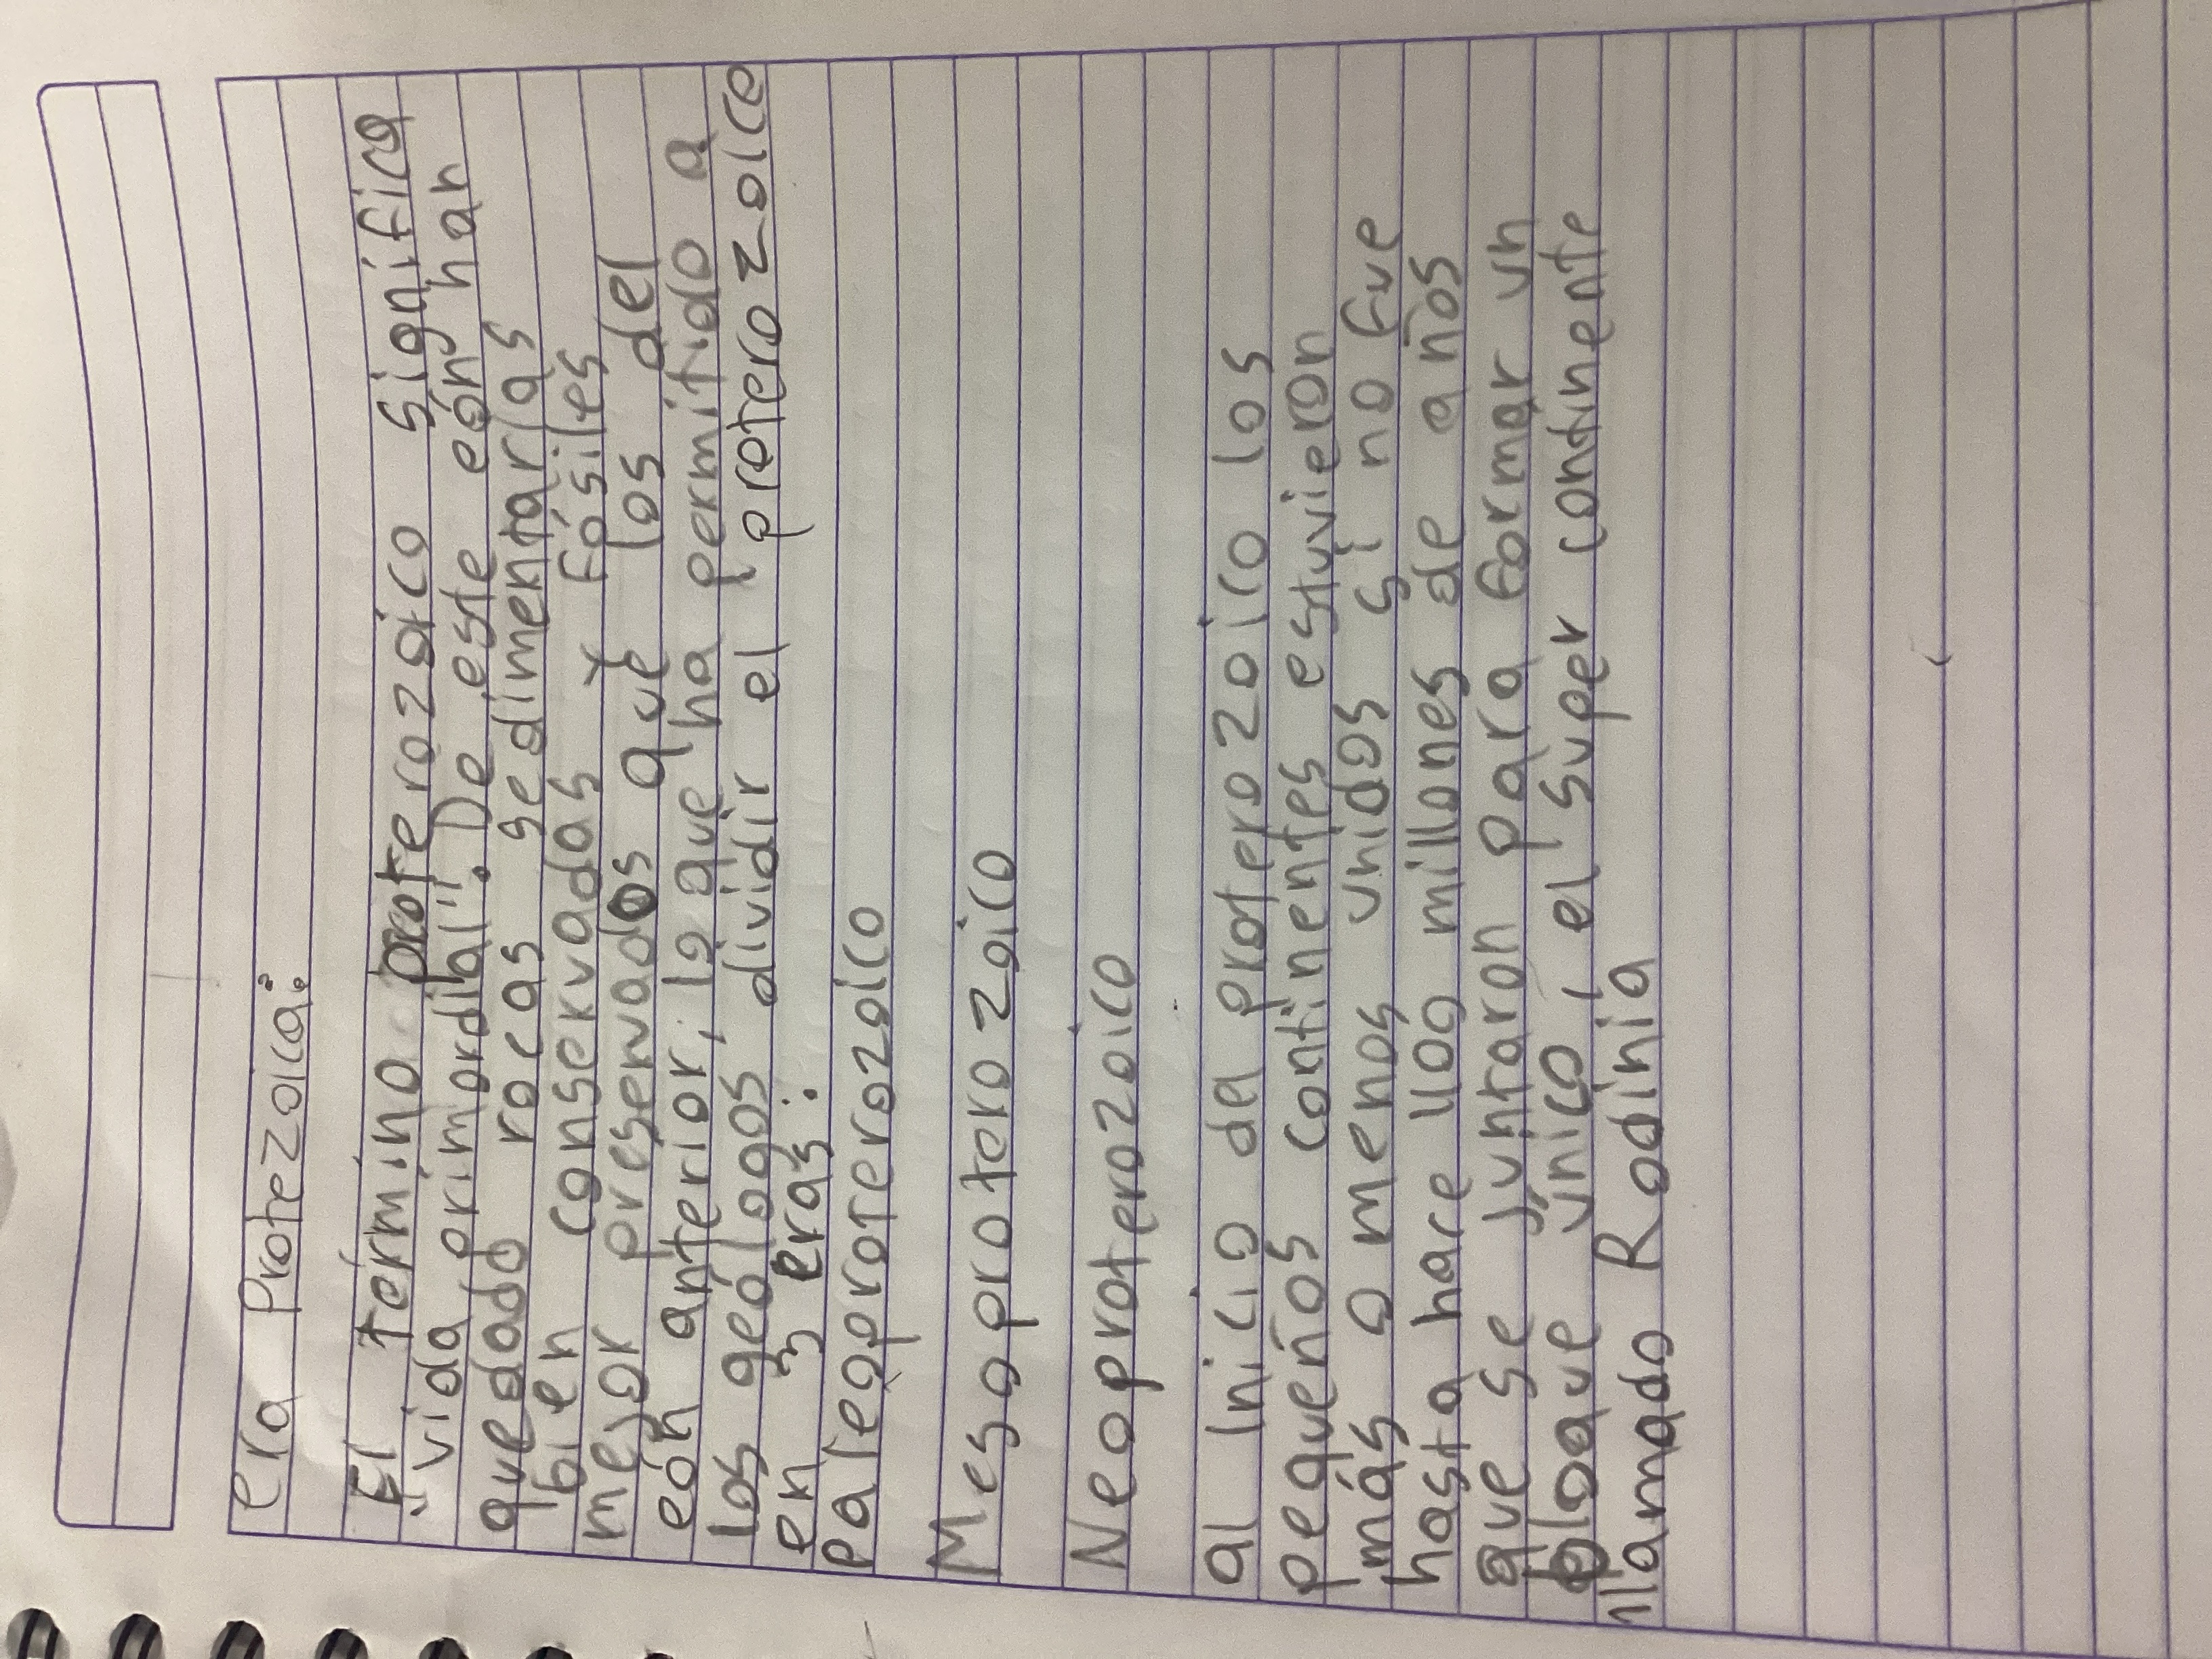 era Protezoica:
El término proterozoico significa
"vida primordial". De este eón han
quedado rocas sedimentarias
bien conservadas y fósiles
mejor preservados que los del
eón anterior, lo que ha permitido a
los geólogos dividir el proterozoice
en 3 eras:
Paleoproterozoico
Mesoproterozoico
Neoproterozoico
al Inicio del proterozoico los
pequeños continentes estuvieron
más o menos unidos si no fue
hasta hace 1100 millones de años
que se juntaron para formar un
bloque único, el super continente
llamado Rodinia